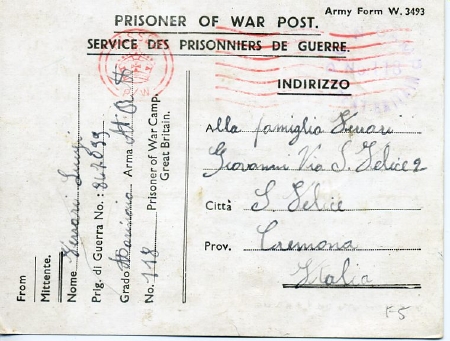 Army Form W. 3493
PRISONER OF WAR POST.
SERVICE DES PRISONNIERS DE GUERRE.
INDIRIZZO
Alla famiglia Ferrari
Giovanni Via S. Felice 2
Città S. Felice
Prov. Cremona
Italia
From
Mittente.
Nome Ferrari Luigi
Prig. di Guerra No.:
Grado Marinaio Arma
No. 118 Prisoner of War Camp.
Great Britain.
F5